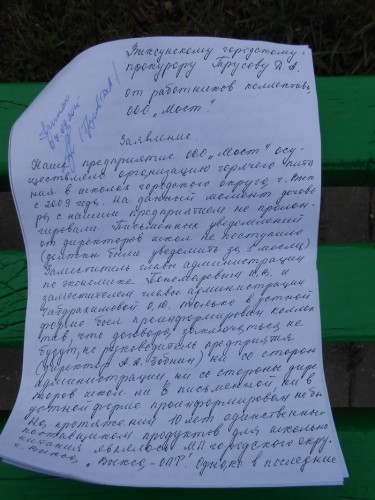 Выксунскому городскому
прокурору Трусову Д.А.
от работников коллектива
ООО "Мост".
Заявление
Наше предприятие ООО "Мост" осу-
ществляло организацию горячего пита
ния в школах городского округа г. Вык
с 2009 года. На данный момент догово
ра с нашим предприятием не пролон-
гировали. Письменных уведомлений
от директоров школ не поступило
(должны были уведомить за 2 месяца)
Заместитель главы администрации
по экономике Пономаревич и
заместителем главы администрации
О.Ю. только в устной
форме был проинформирован коллек
тив, что договора заключаться не
будут, но руководитель предприятия
(директор А.А. ) ни со стороны
администрации, ни со стороны дирек
торов школ ни в письменной, ни в
устной форме проинформирован не был
На протяжении 10 лет единственным
поставщиком продуктов для школьно
питания являлось МП городского окру.
г. Выкса, "Выкса-ОПТ". Однако в последние